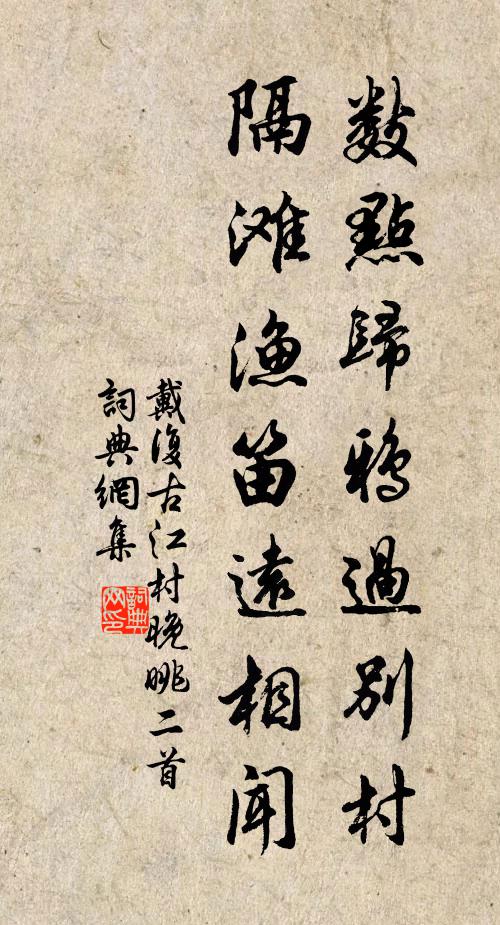 數點歸鴉過別村
隔滩渔笛遠相聞
戴復古江村晚眺二首
詞典網集
詞典
网印